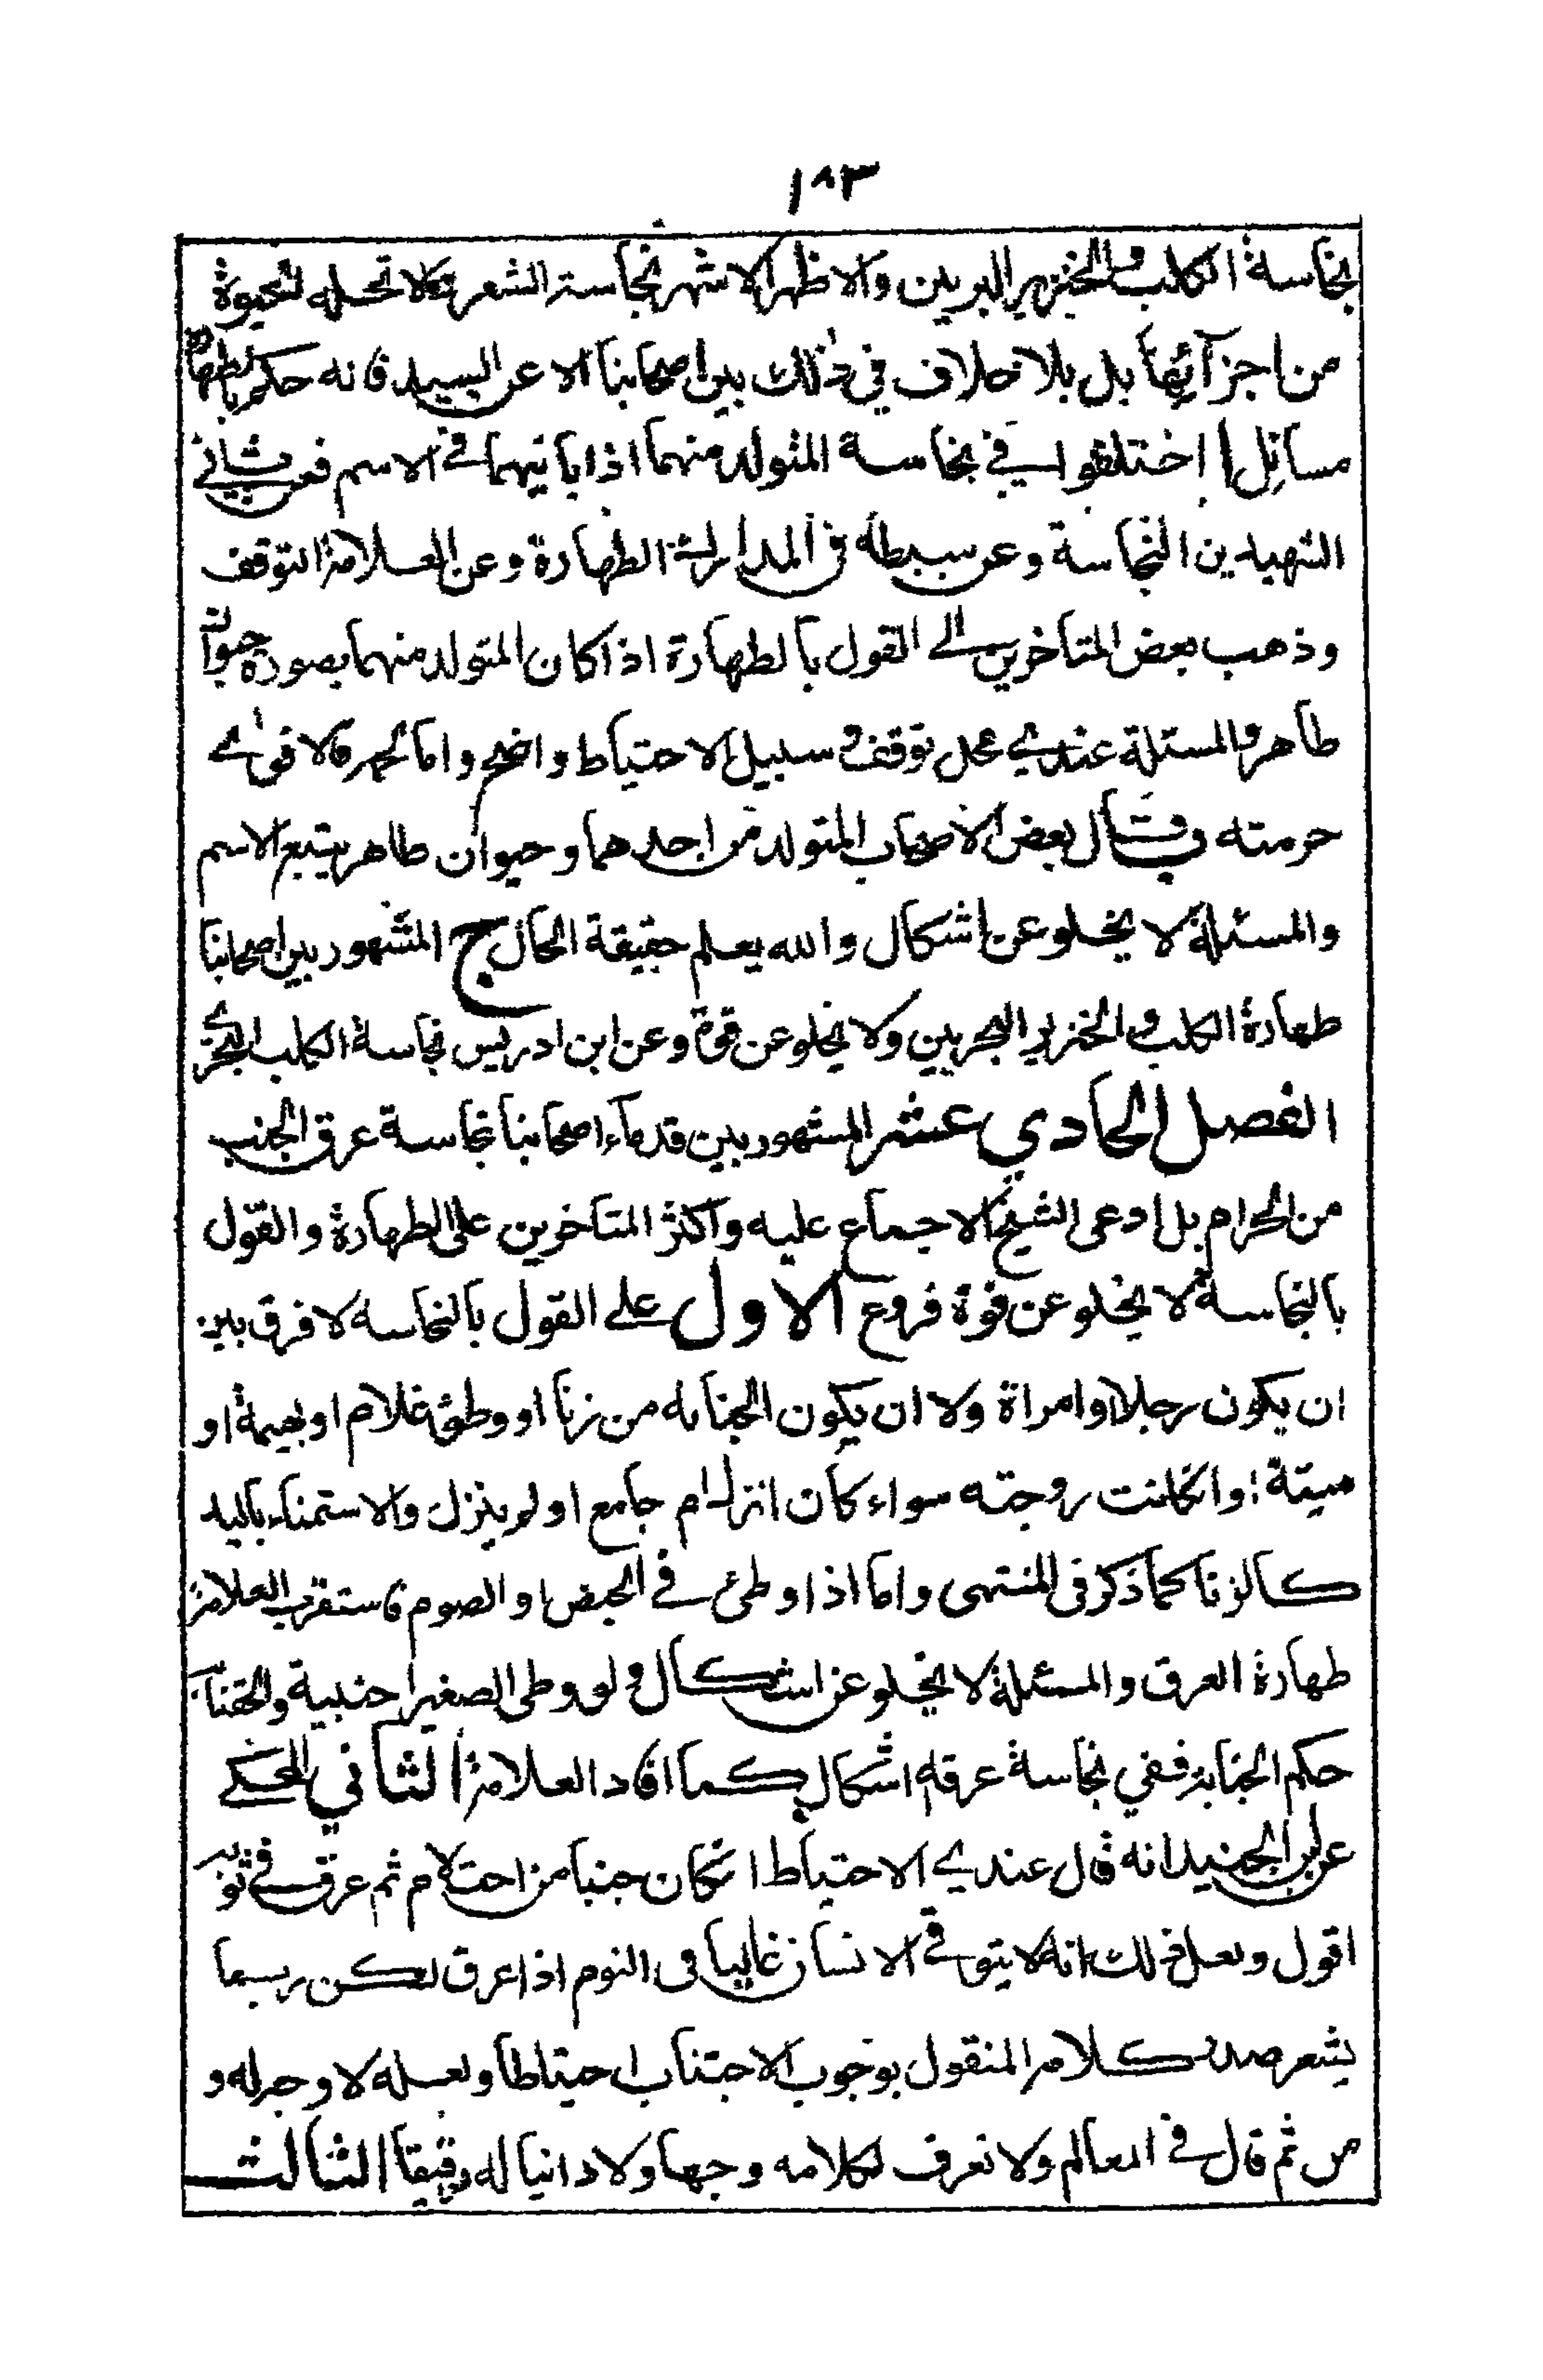 ١٨٣
نجاسة الكلب والخنزير البريين والاظهر الاشهر نجاسة الشعر وكلا تحله الحيوة
من اجزآئهما بل بلا خلاف في ذلك بين اصحابنا الا عن السيد فانه حكم بالطهارة
مسائل ا اختلفوا في نجاسة المتولد منهما اذا باينهما في الاسم فعن ثاني
الشهيدين النجاسة وعن سبطه في المدارك الطهارة وعن العلامة التوقف
وذهب بعض المتاخرين الى القول بالطهارة اذا كان المتولد منهما بصورة حيوان
طاهر والمسئلة عندي محل توقف وسبيل الاحتياط واضح واما لحمه فالاقوى
حرمته وقال بعض الاصحاب المتولد من احدهما وحيوان طاهر يتبع الاسم
والمسئلة لا يخلو عن اشكال والله يعلم حقيقة الحال ج المشهور بين اصحابنا
طهارة الكلب والخنزير البحريين ولا يخلو عن قوة وعن ابن ادريس نجاسة الكلب البحري
الفصل الحادي عشر المشهور بين قدمآء اصحابنا نجاسة عرق الجنب
من الحرام بل ادعى الشيخ الاجماع عليه واكثر المتاخرين على الطهارة والقول
بالنجاسة لا يخلو عن قوة فروع الاول على القول بالنجاسه لا فرق بين
ان يكون رجلا او امراة ولا ان يكون الجنابه من زنا او وطئ غلام او بهيمة او
ميتة او انكانت زوجته سواء كان انزل ام جامع او لم ينزل والاستمناء باليد
كالزنا كما ذكر في المنتهى واما اذا وطئ في الحيض او الصوم فاستقرب العلامة
طهارة العرق والمسئلة لا يخلو عن اشكال ولو وطى الصغير اجنبية والحقنا به
حكم الجنابة ففي نجاسة عرقه اشكال كما افاد العلامة الثاني المحكي
عن ابن الجنيد انه قال عندي الاحتياط انكان جنبا من احتلام ثم عرق في ثوبه
اقول ولعل ذلك انه لا يتوقى الانسان غالبا في النوم اذا عرق لكن ربما
يشعر صدر كلامه المنقول بوجوب الاجتناب احتياطا ولعله لا وجه له و
من ثم قال في المعالم ولا نعرف لكلامه وجها ولا دانيا له رفيقا الثالث